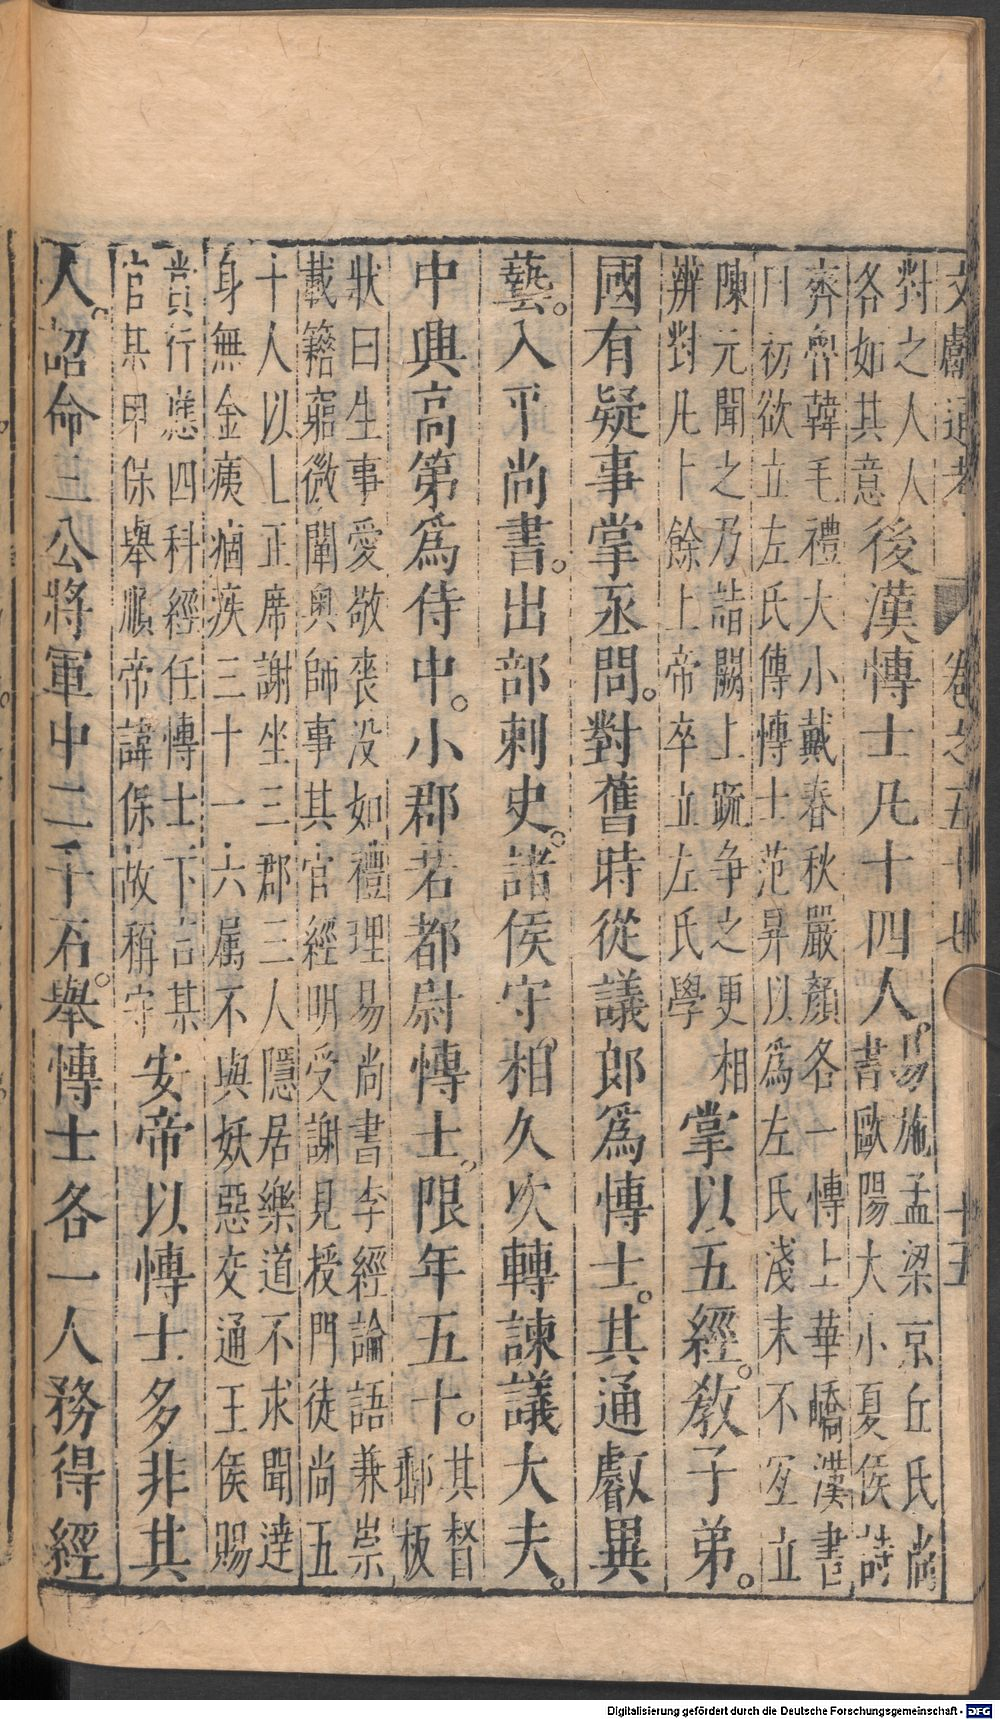 文獻通考 卷之五十七 十五
對之人人
各如其意
後漢博士凡十四人。
易施孟梁京丘氏尚
書歐陽大小夏侯詩
齊魯韓毛禮大小戴春秋嚴顏各一博士華嶠漢書
曰初欲立左氏傳博士范昇以為左氏淺末不宜立
陳元聞之乃詣闕上疏爭之更相
辨對凡十餘上帝卒立左氏學
掌以五經。教子弟。
國有疑事掌丞問。對舊時從議郎爲博士。其通叡異
藝。入平尚書。出部刺史。諸侯守。相久次轉諫議大夫。
中興高第爲侍中。小郡若都尉博士。限年五十。
其督
鄒板
狀曰生事愛敬喪没如禮理易尚書李經論語兼崇
載籍窮微闡奧師事其官經明受謝見授門徒尚五
十人以上正席謝坐三郡三人隱居樂道不求聞達
身無金痍痼疾三十一六属不與妖惡交通王侯賜
賞行應四科經任博士下言某
官某甲保舉順帝諱保故稱守
安帝以博士多非其
人。詔命三公將軍中二千石。舉博士各一人務得經
Digitalisierung gefördert durch die Deutsche Forschungsgemeinschaft - DFG